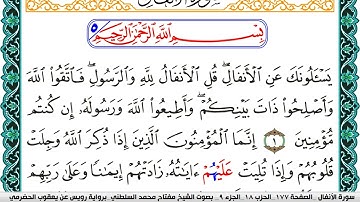 بِسْمِ اللَّهِ الرَّحْمَٰنِ الرَّحِيمِ
يَسْـَٔلُونَكَ عَنِ الْأَنفَالِ ۖ قُلِ الْأَنفَالُ لِلَّهِ وَالرَّسُولِ ۖ فَاتَّقُوا اللَّهَ
وَأَصْلِحُوا ذَاتَ بَيْنِكُمْ ۖ وَأَطِيعُوا اللَّهَ وَرَسُولَهُ إِن كُنتُم
مُّؤْمِنِينَ ١ إِنَّمَا الْمُؤْمِنُونَ الَّذِينَ إِذَا ذُكِرَ اللَّهُ وَجِلَتْ
قُلُوبُهُمْ وَإِذَا تُلِيَتْ عَلَيْهُمْ ءَايَٰتُهُ زَادَتْهُمْ إِيمَٰنًا وَعَلَىٰ رَبِّهِمْ
سورة الأنفال الصفحة ١٧٧ الحزب ١٨ الجزء ٩ بصوت الشيخ مفتاح محمد السلطني برواية رويس عن يعقوب الحضرمي